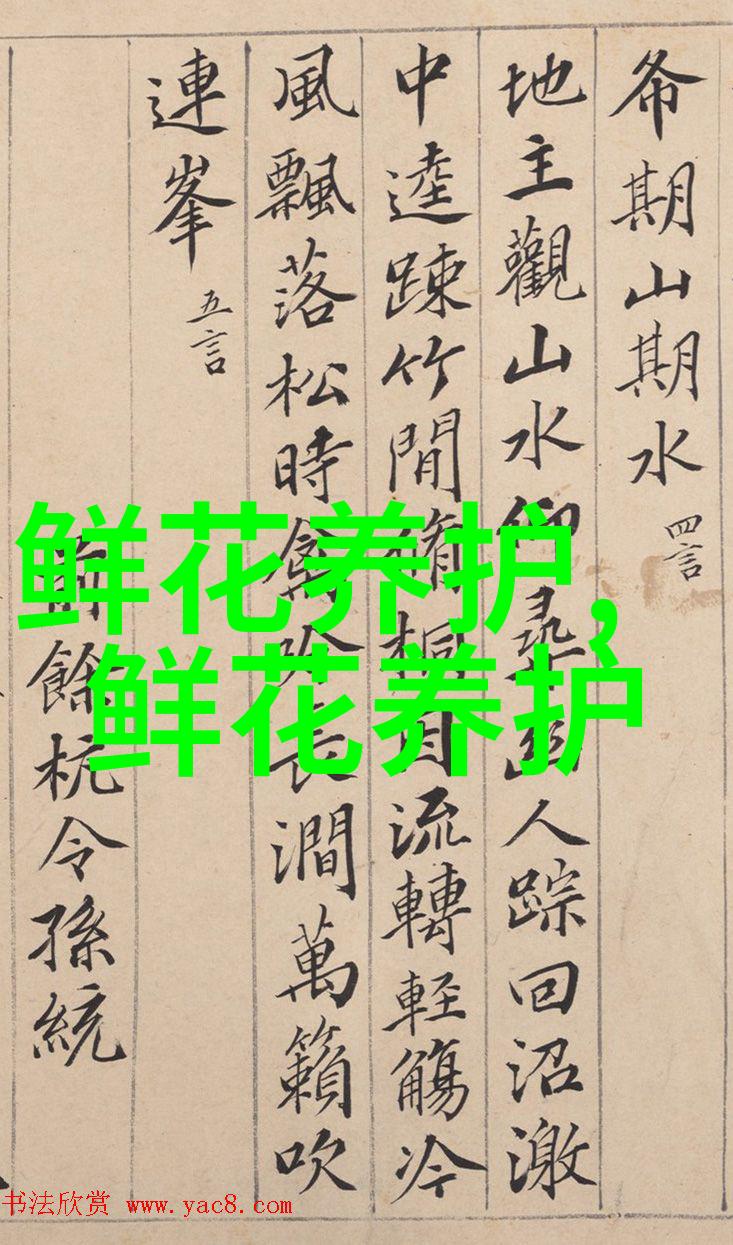 希期山期水 四言
地主觀山水仰尋幽人踪回沼激
中逵踈竹間脩桐因流轉輕觴冷
風飄落松時禽吟長澗萬籟吹
連峯 五言
前餘杭令孫統
鲜花养护,
鲜花养护
书法欣赏 www.yac8.com